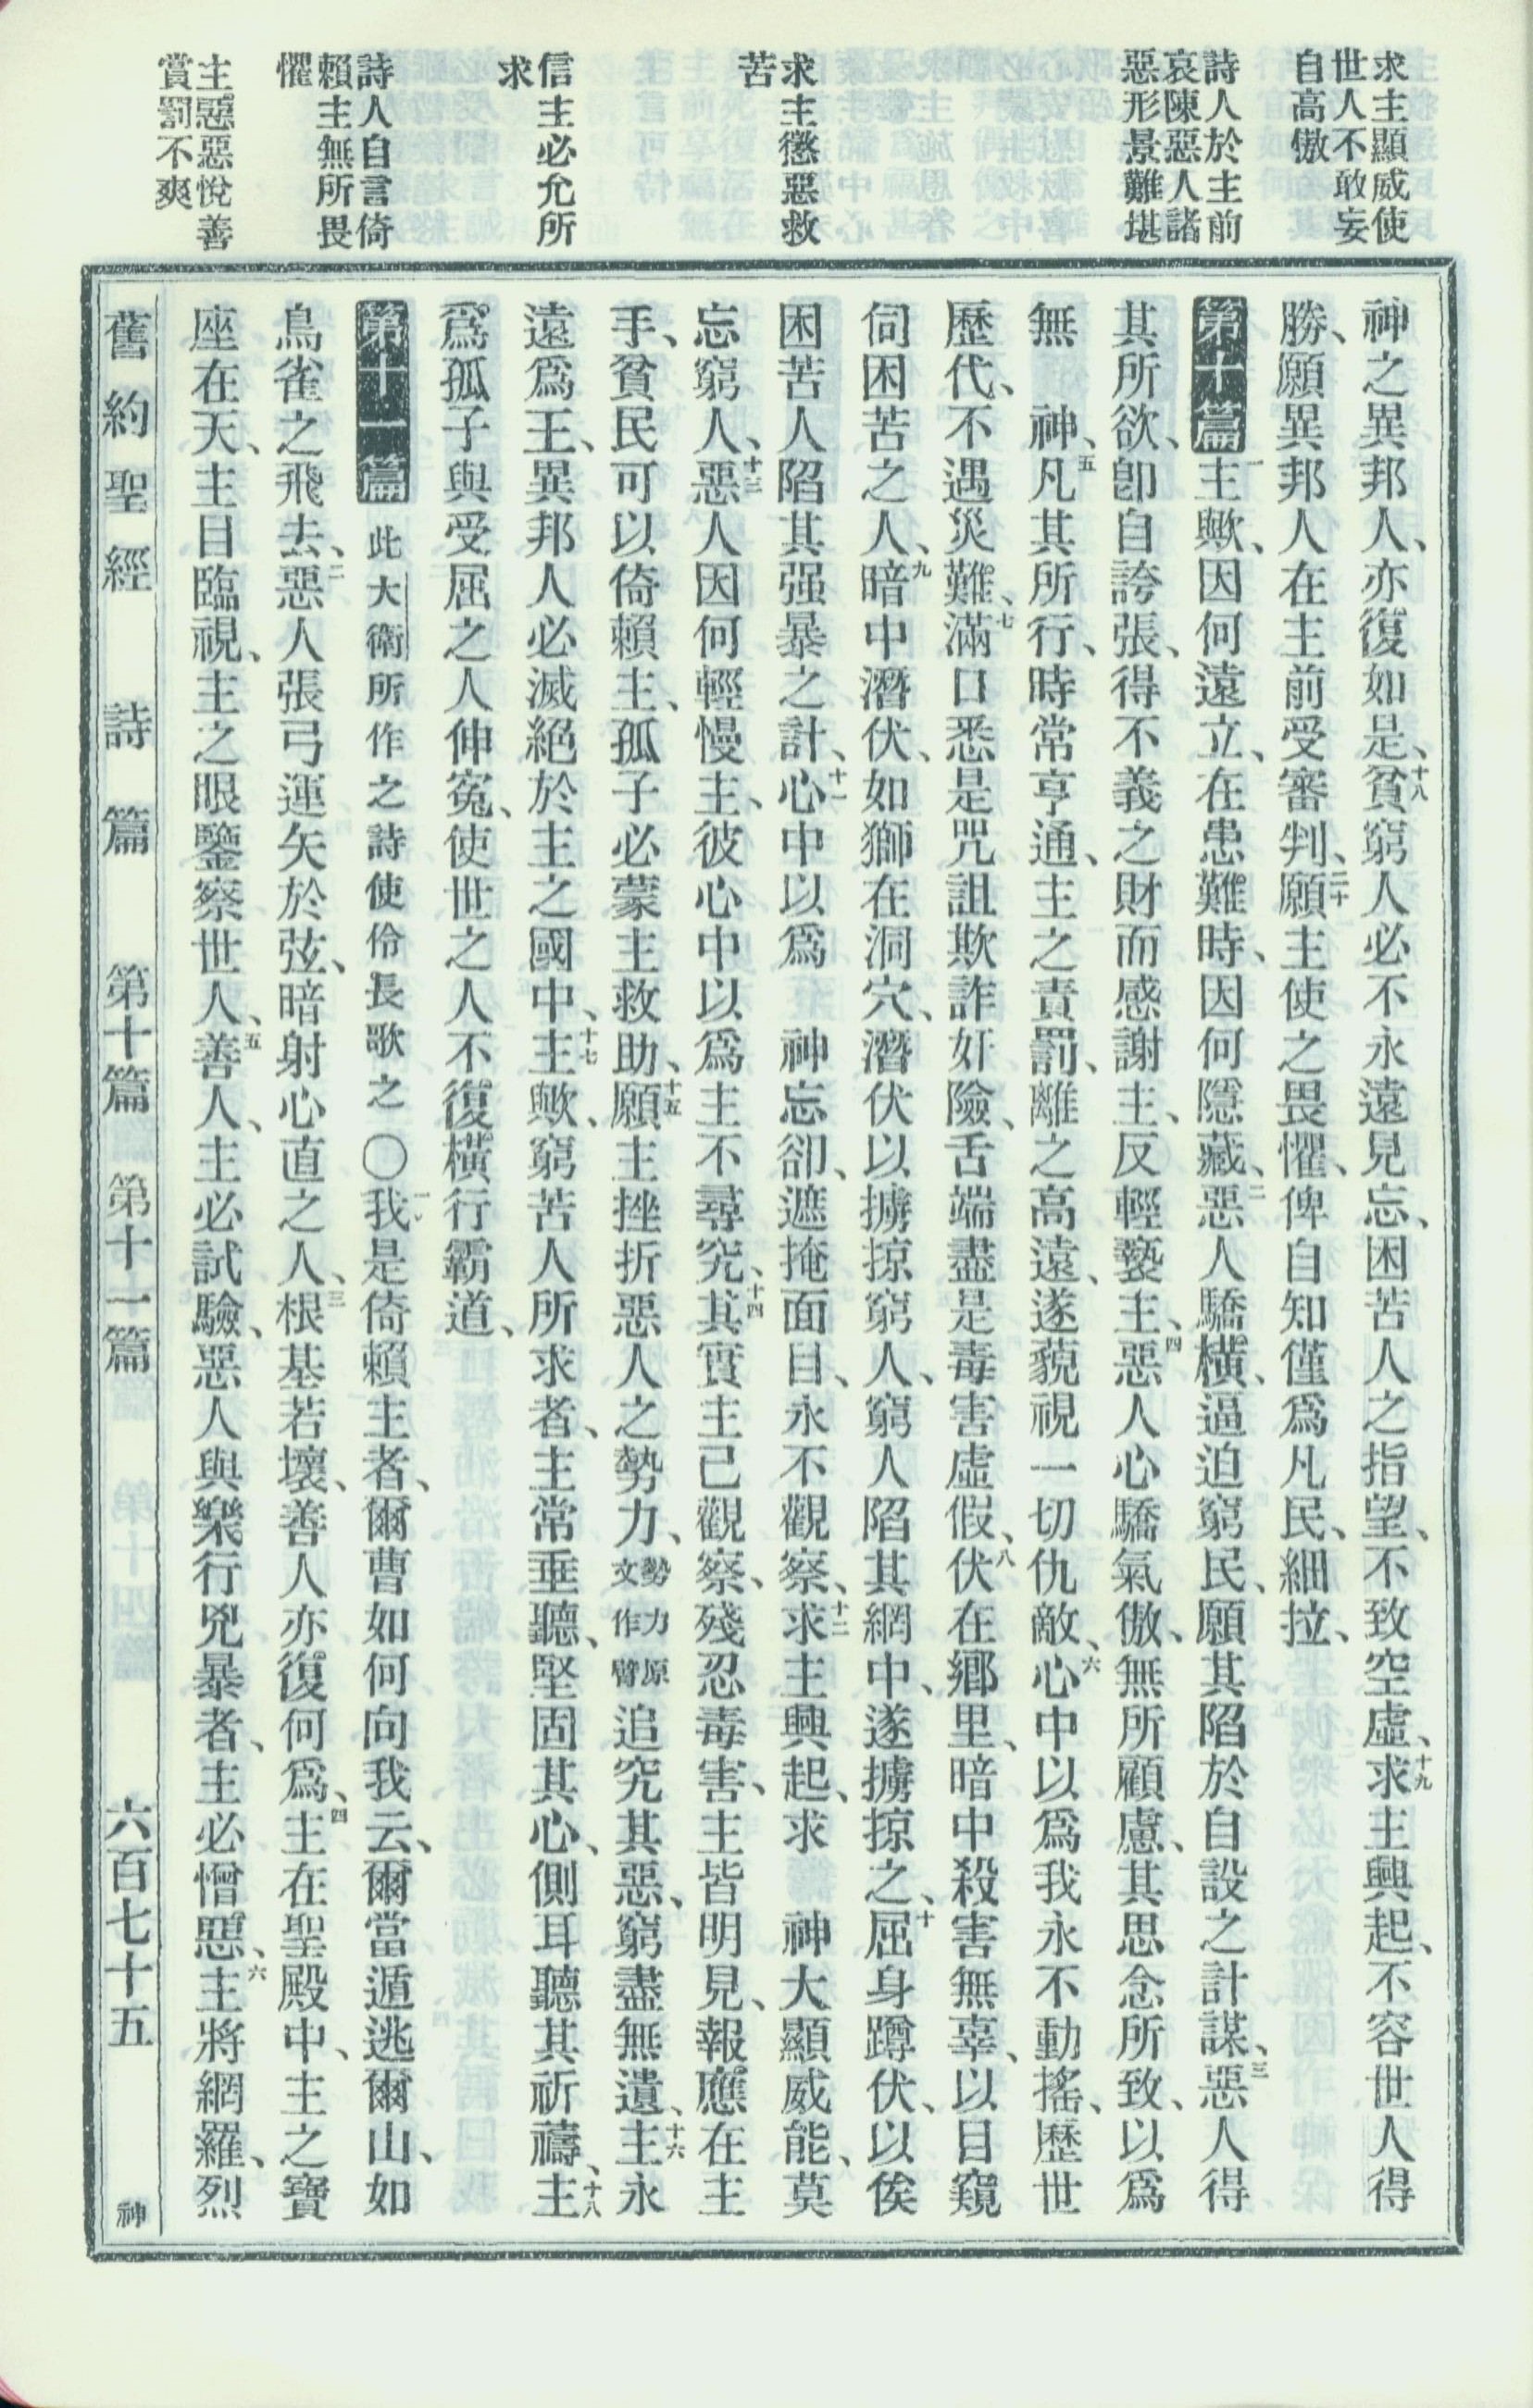 求主顯威使
世人不敢妄
自高傲
詩人於主前
哀陳惡人諸
惡形景難堪
求主懲惡救
苦
信主必允所
求
詩人自言倚
賴主無所畏
懼
主惡惡悅善
賞罰不爽
神之異邦人、亦復如是、十八貧窮人必不永遠見忘、困苦人之指望、不致空虛、十九求主興起、不容世人得
勝、願異邦人在主前受審判、二十願主使之畏懼、俾自知僅爲凡民、細拉、
第十篇 一主歟、因何遠立、在患難時、因何隱藏、二惡人驕橫、逼迫窮民、願其陷於自設之計謀、三惡人得
其所欲、卽自誇張、得不義之財而感謝主、反輕褻主、四惡人心驕氣傲、無所顧慮、其思念所致、以爲
無 神、五凡其所行、時常亨通、主之責罰、離之高遠、遂藐視一切仇敵、六心中以爲我永不動搖、歷世
歷代、不遇災難、七滿口悉是咒詛欺詐奸險、舌端盡是毒害虛假、八伏在鄉里、暗中殺害無辜、以目窺
伺困苦之人、九暗中潛伏、如獅在洞穴、潛伏以擄掠窮人、窮人陷其網中、遂擄掠之、十屈身蹲伏、以俟
困苦人陷其强暴之計、十一心中以爲 神忘卻、遮掩面目、永不觀察、十二求主興起、求 神大顯威能、莫
忘窮人、十三惡人因何輕慢主、彼心中以爲主不尋究、十四其實主已觀察、殘忍毒害、主皆明見、報應在主
手、貧民可以倚賴主、孤子必蒙主救助、十五願主挫折惡人之勢力、勢力原文作臂追究其惡、窮盡無遺、十六主永
遠爲王、異邦人必滅絕於主之國中、十七主歟、窮苦人所求者、主常垂聽、堅固其心、側耳聽其祈禱、十八主
爲孤子與受屈之人伸寃、使世之人不復橫行霸道、
第十一篇 此大衛所作之詩使伶長歌之 〇一我是倚賴主者、爾曹如何向我云、爾當遁逃爾山、如
鳥雀之飛去、二惡人張弓運矢於弦、暗射心直之人、三根基若壞、善人亦復何爲、四主在聖殿中、主之寶
座在天、主目臨視、主之眼鑒察世人、五善人、主必試驗、惡人與樂行兇暴者、主必憎惡、六主將網羅、烈
舊約聖經 詩篇 第十篇 第十一篇 六百七十五 神